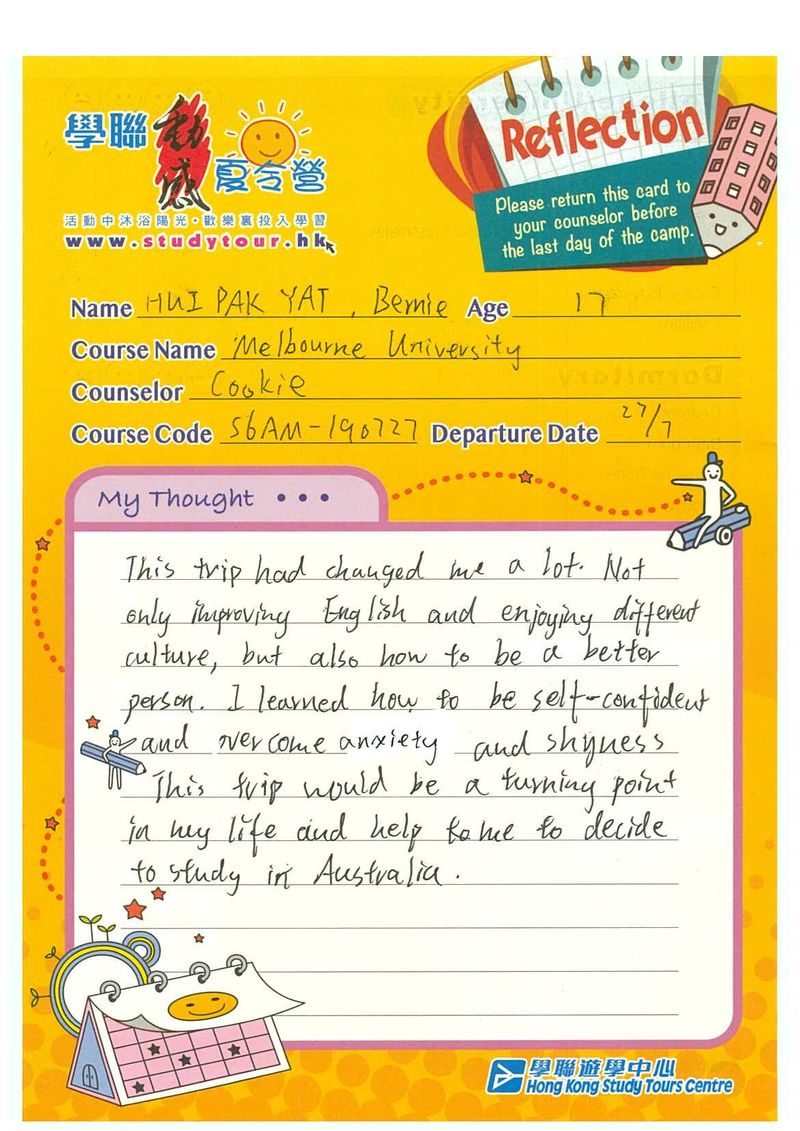 學聯 動感 夏令營
活動中沐浴陽光・歡樂裏投入學習
www.studytour.hk
Reflection
Please return this card to
your counselor before
the last day of the camp.
Name HUI PAK YAT , Bernie Age 17
Course Name Melbourne University
Counselor Cookie
Course Code S6AM-190727 Departure Date 27/7
My Thought • • •
This trip had changed me a lot. Not
only improving English and enjoying different
culture, but also how to be a better
person. I learned how to be self-confident
and overcome anxiety and shyness
This trip would be a turning point
in my life and help to me to decide
to study in Australia.
學聯遊學中心
Hong Kong Study Tours Centre